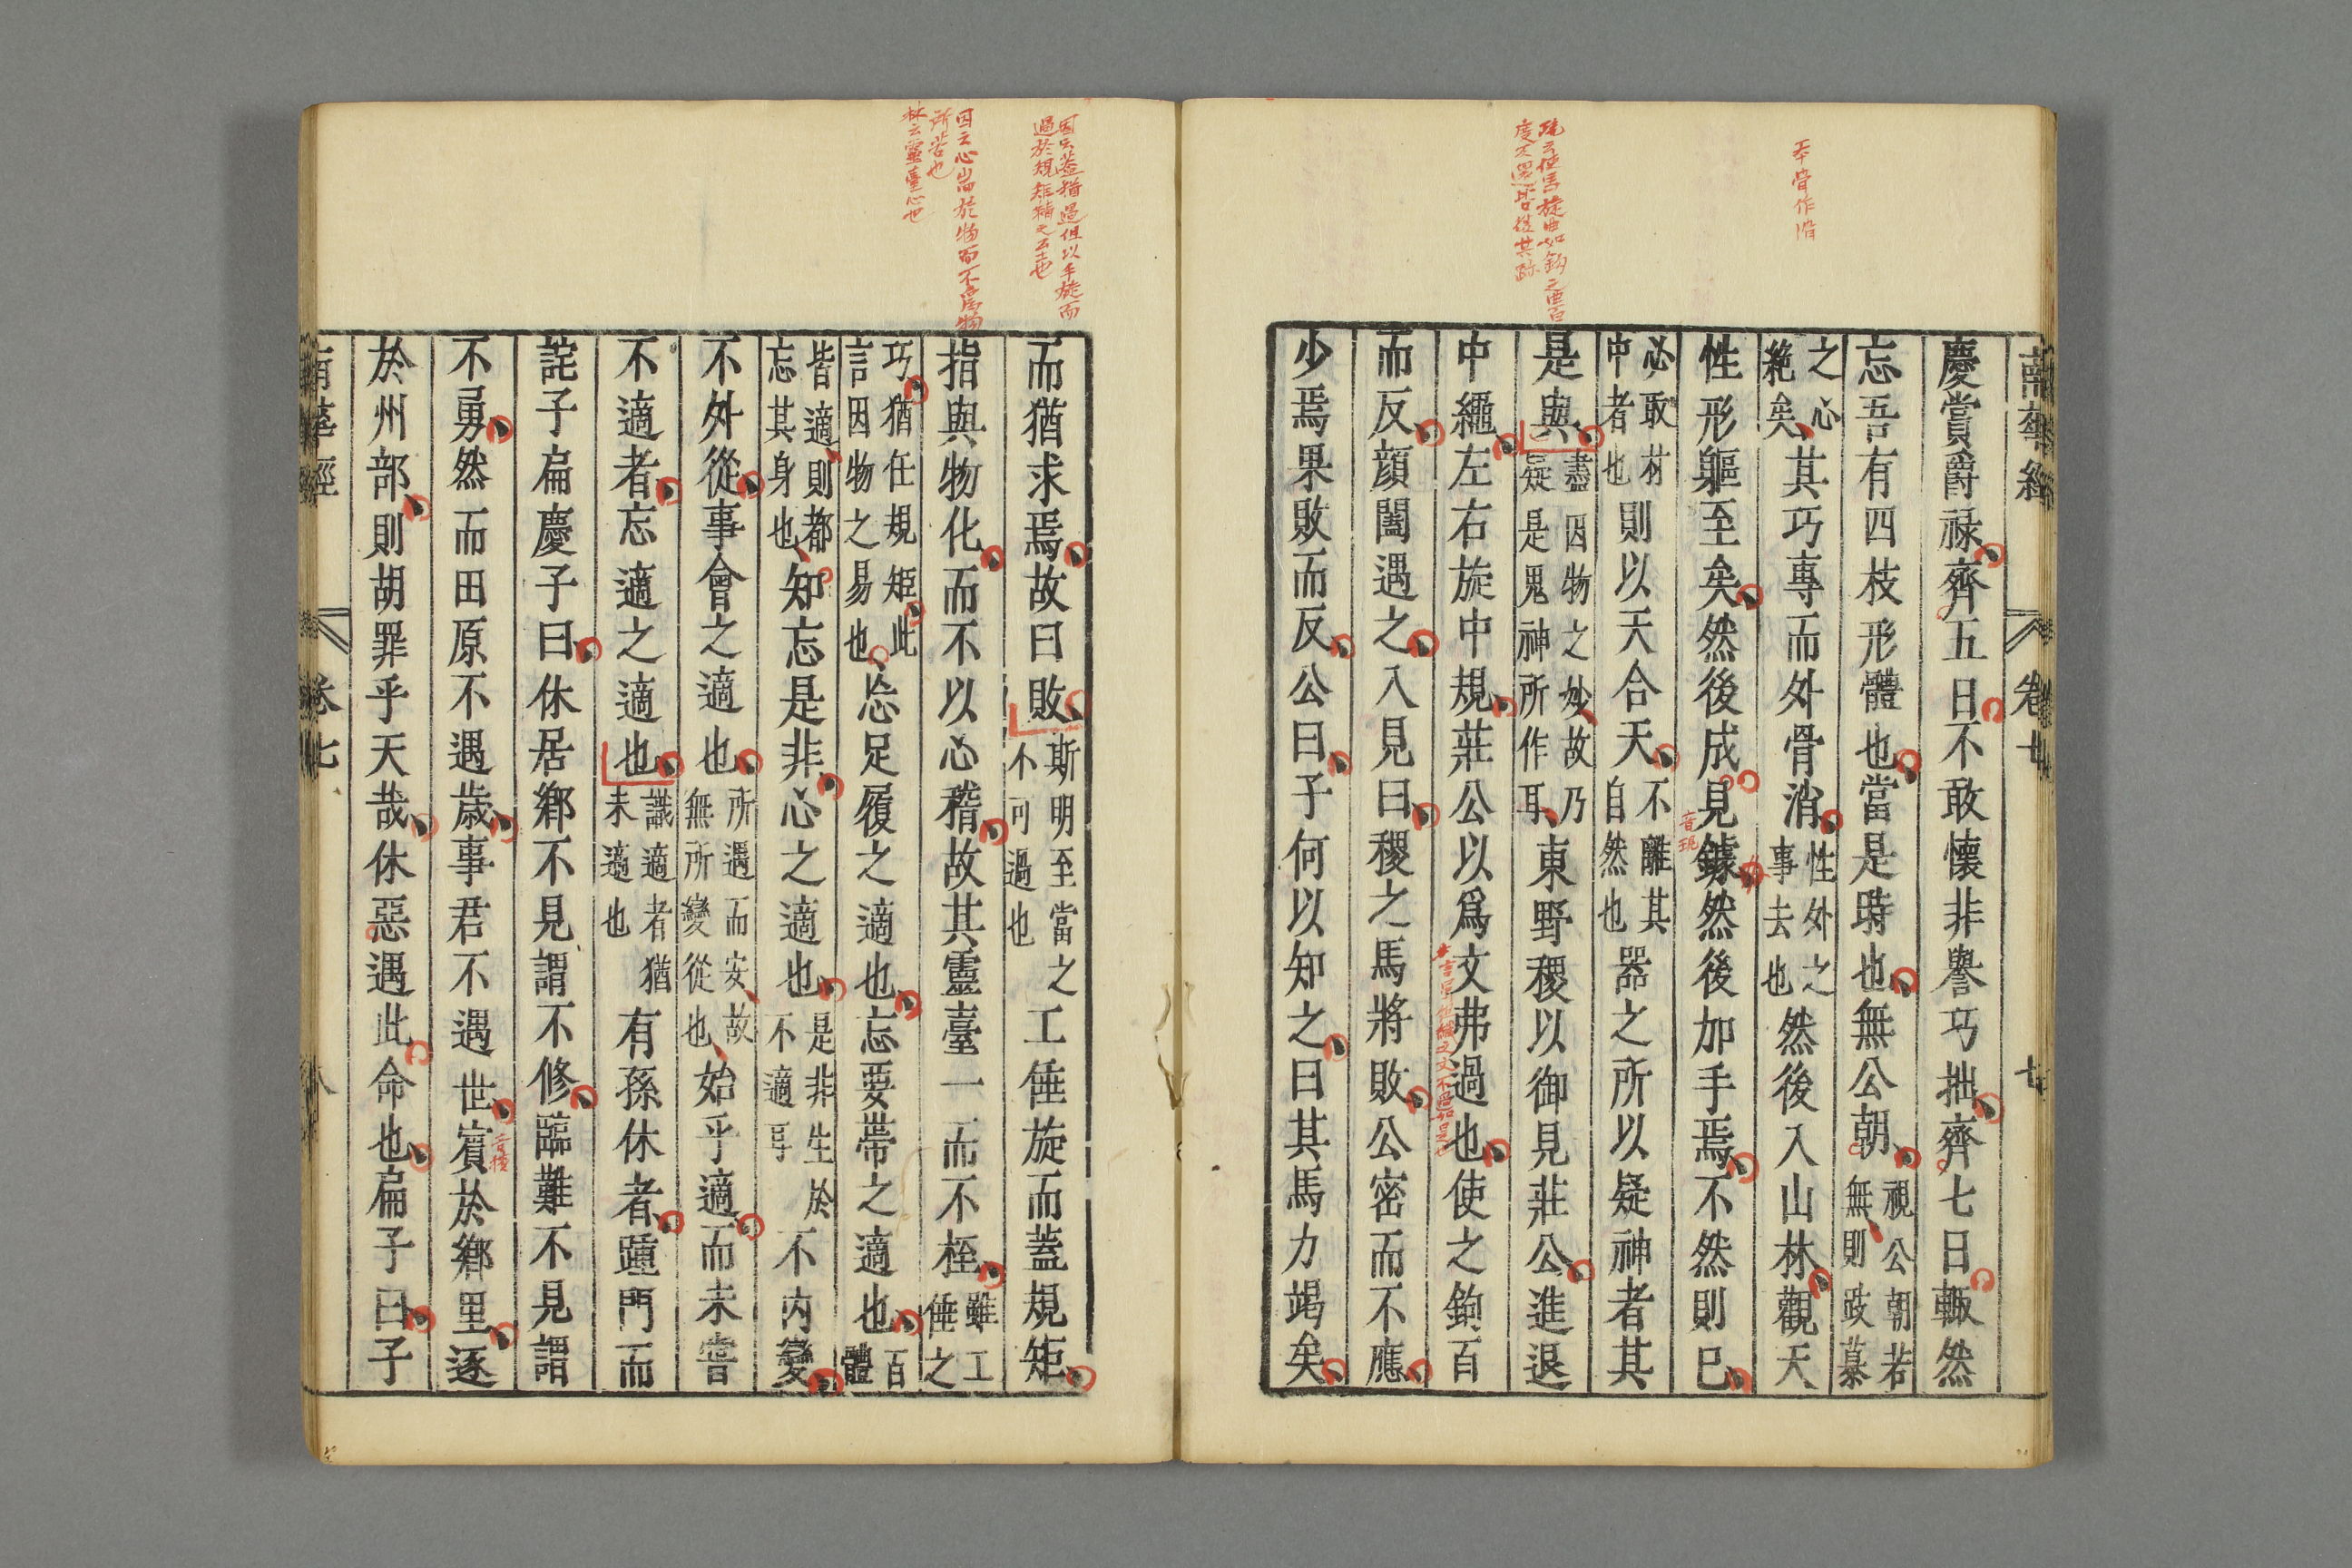 南華經 卷七 七
慶賞爵祿齊五日不敢懷非譽巧拙齊七日輙然
忘吾有四枝形體也當是時也無公朝視公朝若無則跂慕
之心絶矣其巧專而外骨消性外之事去也然後入山林觀天
性形軀至矣然後成見鐻然後加手焉不然則巳
必取材中者也則以天合天不離其自然也器之所以疑神者其
是與盡因物之妙故乃疑是鬼神所作耳東野稷以御見莊公進退
中繩左右旋中規莊公以爲文弗過也使之鉤百
而反顔闔遇之入見曰稷之馬將敗公密而不應
少焉果敗而反公曰子何以知之曰其馬力竭矣
本骨作滑
疏云使馬旋曲如鉤之曲百
度不還皆復其跡
音現
而猶求焉故曰敗斯明至當之不可過也工倕旋而蓋規矩
指與物化而不以心稽故其靈臺一而不桎雖工倕之
巧猶任規矩此言因物之易也忘足履之適也忘要帶之適也百體
皆適則都忘其身也知忘是非心之適也是非生於不適耳不内變
不外從事會之適也所遇而安故無所變從也始乎適而未嘗
不適者忘適之適也識適者猶未適也有孫休者踵門而
詫子扁慶子曰休居鄉不見謂不修臨難不見謂
不勇然而田原不遇歲事君不遇世賓於鄉里逐
於州部則胡罪乎天哉休惡遇此命也扁子曰子
南華經 卷七 八
因云蓋猶過但以手旋而
過於規矩精之工也
因云心出於物而不爲物
所苦也
林云靈臺心也
音擯